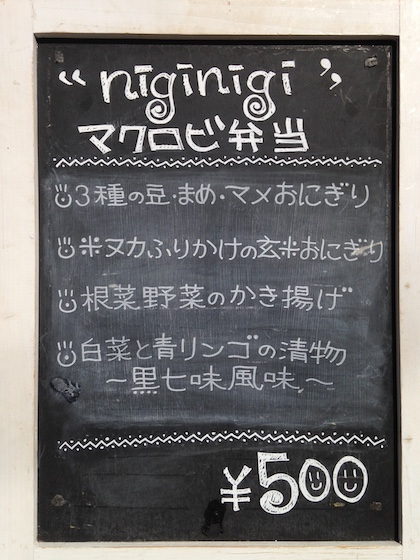 “niginigi”
マクロビ弁当
3種の豆・まめ・マメおにぎり
米ヌカふりかけの玄米おにぎり
根菜野菜のかき揚げ
白菜と青リンゴの漬物
〜黒七味風味〜
¥500